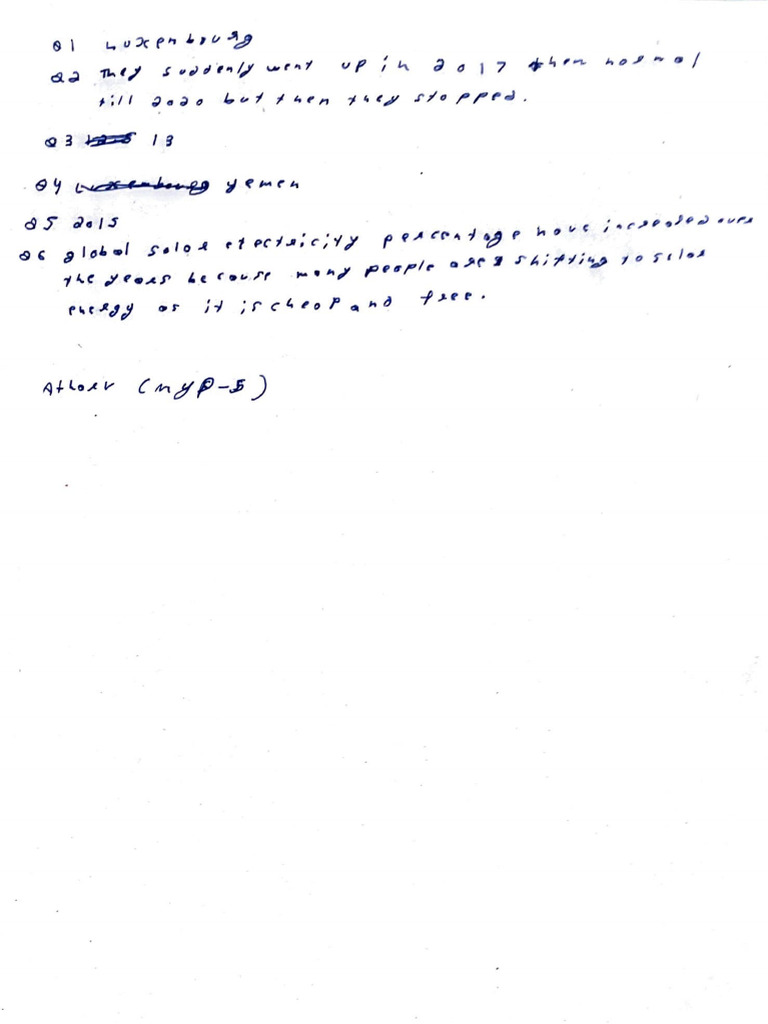 Q1 Luxenbourg
Q2 They suddenly went up in 2017 then normal
till 2020 but then they stopped.
Q3 13
Q4 yemen
Q5 2015
Q6 global solar electricity percentage have increased over
the years because many people are shifting to solar
energy as it is cheap and free.
Atharv (myp-5)